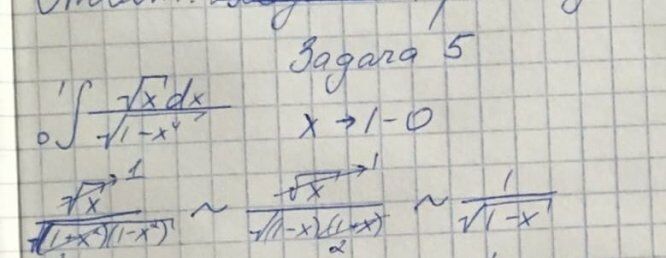 Задача 5
1
0 ∫ √x dx / √(1-x⁴)    x → 1-0
√x → 1 / √((1+x²)(1-x²)) ~ √x → 1 / √((1-x)(1+x)) 2 ~ 1 / √(1-x)